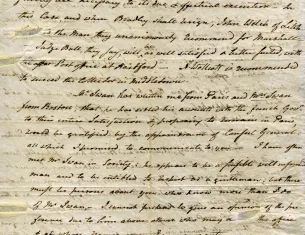 this Case and when Bradley shall resign, John Welch of Litch
is the Man they unanimously recommend for Marshall
Judge Bull they say, will be well satisfied & better suited with
Post office at Hartford. — A
to succeed the Collector in Middletown.
Mr Swan has written me from Paris and Mrs Swan
from Boston, that he has settled his accounts with the french Govt
to their entire Satisfaction & proposing to remain in Paris,
would be gratified by the appointment of Consul General
all which I promised to communicate to you. — I have often
met Mr Swan in Society, he appears to be a sensible well informed
man and to be entitled to respect as a gentleman, but there
must be persons about you who know more than I do
of Mr Swan. I cannot pretend to give an opinion of the pre
ference due to him above others who may the office